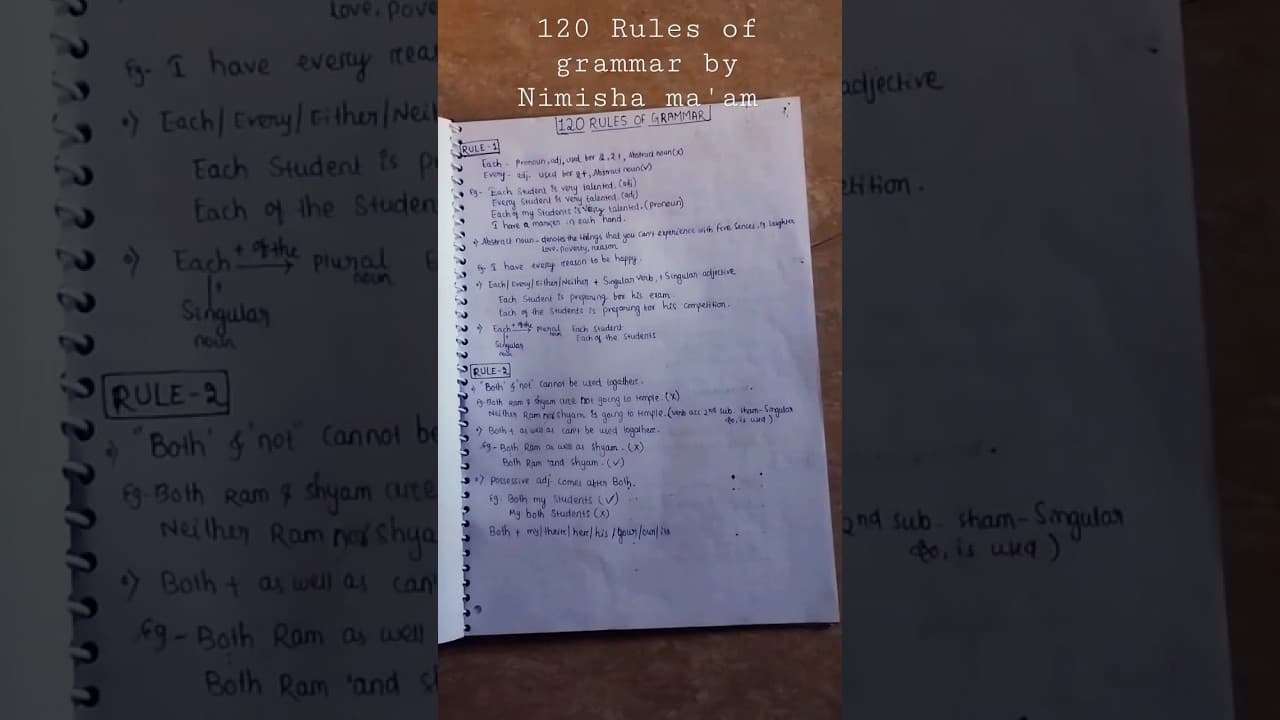 120 Rules of
grammar by
Nimisha ma'am
120 RULES OF GRAMMAR
RULE-1
Each - Pronoun, adj, used for 2, 2+, Abstract noun (x)
Every - adj. used for 2+, Abstract noun (✓)
Eg- Each Student is very talented. (adj)
Every Student is very talented. (adj)
Each of my Students is very talented. (pronoun)
I have a mango in each hand.
Abstract noun - denotes the things that you can't experience with five senses, laughter
love, poverty, reason
Eg- I have every reason to be happy.
Each/Every/Either/Neither + Singular verb, + Singular adjective
Each Student is preparing for his exam
Each of the Students is preparing for his competition.
Each + of the → plural noun Each Student
Singular noun Each of the Students
RULE-2
"Both" & "not" cannot be used togather.
Eg- Both Ram & Shyam are not going to temple. (x)
Neither Ram nor Shyam is going to temple. (verb acc 2nd sub. sham-Singular
so, is used)
Both + as well as can't be used togather.
Eg- Both Ram as well as Shyam. (x)
Both Ram and Shyam. (✓)
Possessive adj. comes after Both.
Eg. Both my Students (✓)
My both Students (x)
Both + my/their/her/his/your/our/its